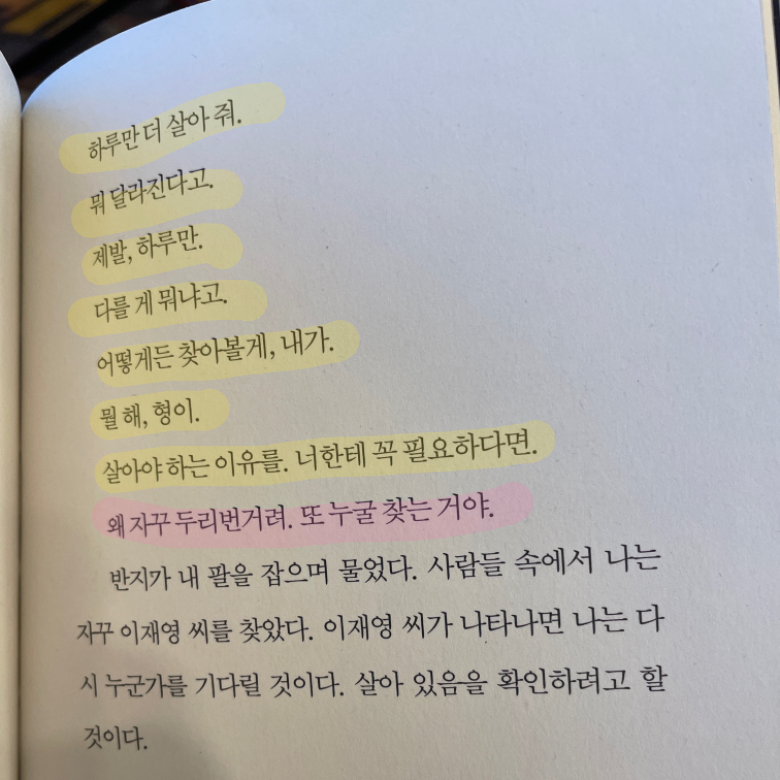 하루만 더 살아 줘.
뭐 달라진다고.
제발, 하루만.
다를 게 뭐냐고.
어떻게든 찾아볼게, 내가.
뭘 해, 형이.
살아야 하는 이유를. 너한테 꼭 필요하다면.
왜 자꾸 두리번거려. 또 누굴 찾는 거야.
반지가 내 팔을 잡으며 물었다. 사람들 속에서 나는
자꾸 이재영 씨를 찾았다. 이재영 씨가 나타나면 나는 다
시 누군가를 기다릴 것이다. 살아 있음을 확인하려고 할
것이다.